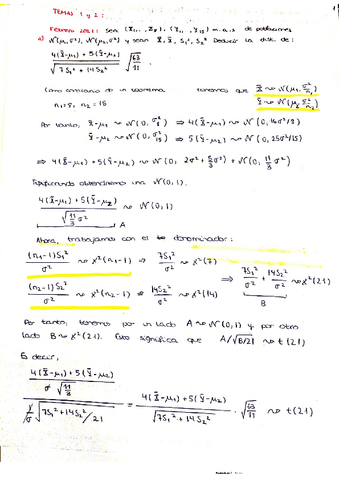 TEMAS 1 y 2:
Febrero 2021: sea (X₁,..,X₈), (Y₁,..,Y₁₅) m.a.s de poblaciones
N(μ₁,σ²), N(μ₂,σ²) y sean X̄, Ȳ, S₁², S₂² Deducir la dist. de:
a)
4(X̄-μ₁) + 5(Ȳ-μ₂) / √(7S₁² + 14S₂²) · √(63/11)
Como corolario de un teorema tenemos que X̄ ~ N(μ₁, σ²/n₁)
n₁=8, n₂ = 15 Ȳ ~ N(μ₂, σ²/n₂)
Por tanto, X̄-μ₁ ~ N(0, σ²/8) ⇒ 4(X̄-μ₁) ~ N(0, 16σ²/8)
Ȳ-μ₂ ~ N(0, σ²/15) ⇒ 5(Ȳ-μ₂) ~ N(0, 25σ²/15)
⇒ 4(X̄-μ₁) + 5(Ȳ-μ₂) ~ N(0, 2σ² + 5/3 σ²) = N(0, 11/3 σ²)
Tipificando obtendremos una N(0,1).
4(X̄-μ₁) + 5(Ȳ-μ₂) / √(11/3) σ ~ N(0,1)
A
Ahora, trabajamos con el denominador:
(n₁-1)S₁²/σ² ~ χ²(n₁-1) ⇒ 7S₁²/σ² ~ χ²(7)
⇒ 7S₁²/σ² + 14S₂²/σ² ~ χ²(21)
(n₂-1)S₂²/σ² ~ χ²(n₂-1) ⇒ 14S₂²/σ² ~ χ²(14)
B
Por tanto, tenemos por un lado A ~ N(0,1) y por otro
lado B ~ χ²(21). Esto significa que A/√B/21 ~ t(21)
Es decir,
4(X̄-μ₁) + 5(Ȳ-μ₂) / σ√(11/3) / 1/σ √(7S₁² + 14S₂²/21) = 4(X̄-μ₁) + 5(Ȳ-μ₂) / √(7S₁² + 14S₂²) · √(63/11) ~ t(21)